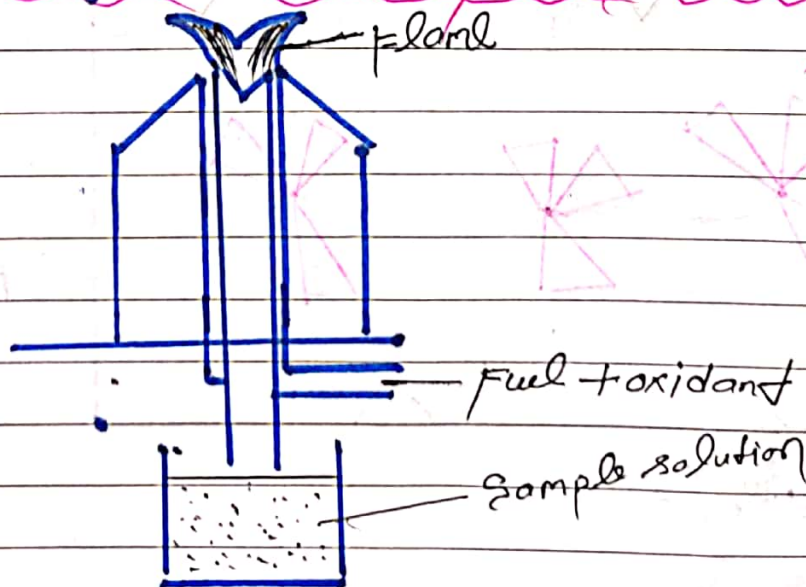 Flame
Fuel + oxidant
Sample solution